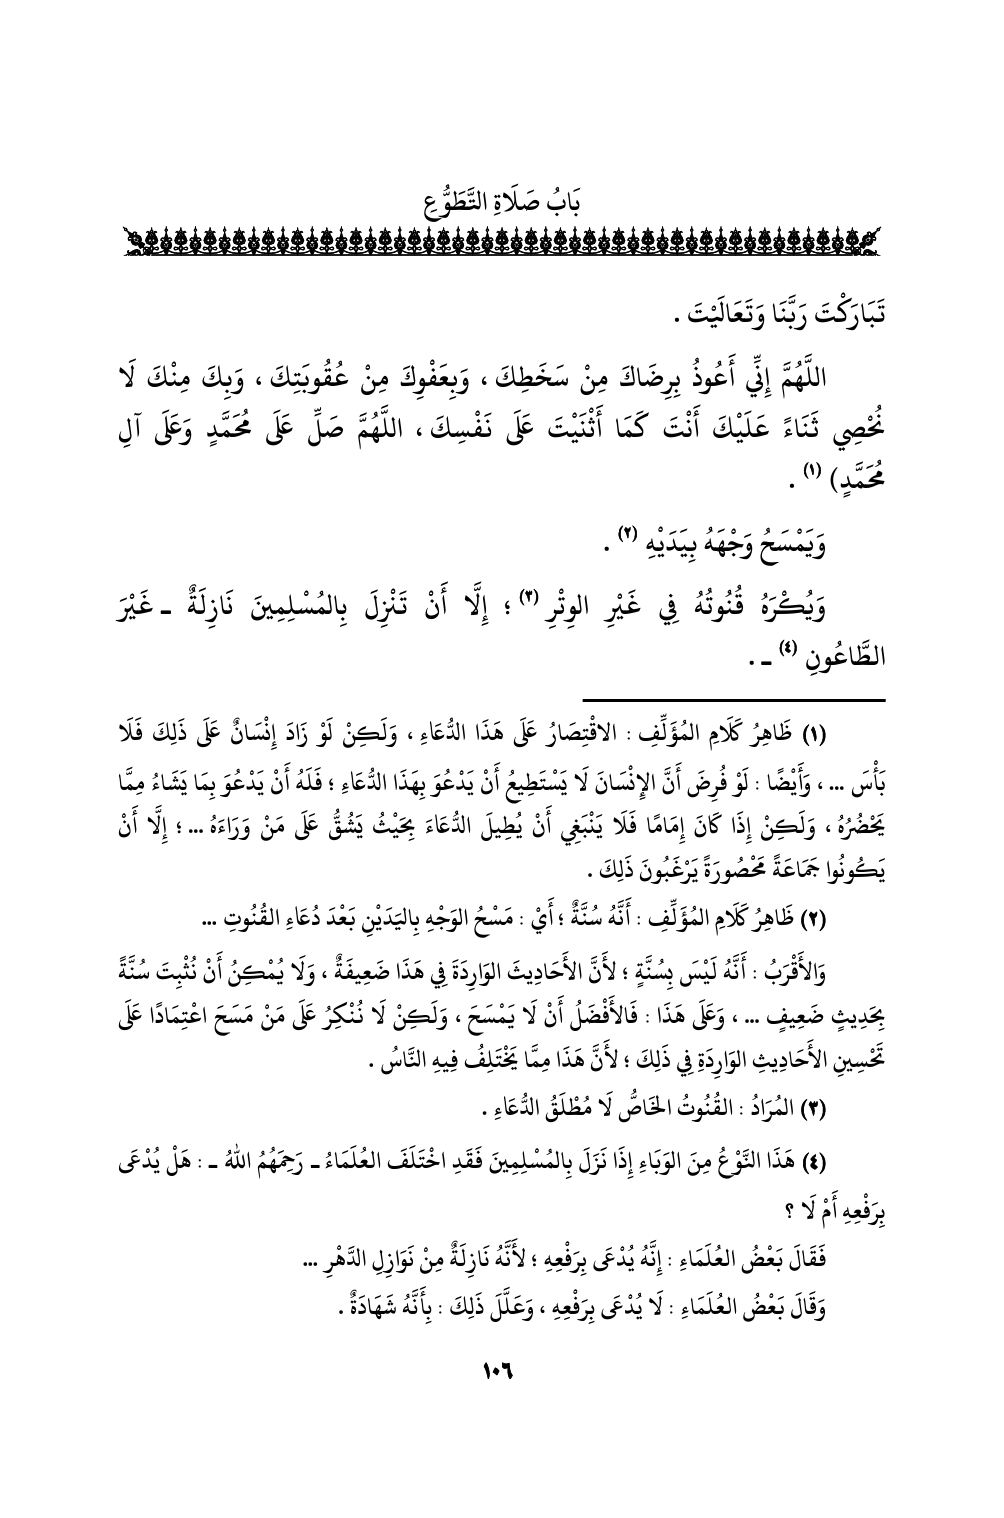 بَابُ صَلَاةِ التَّطَوُّعِ
تَبَارَكْتَ رَبَّنَا وَتَعَالَيْتَ .
اللَّهُمَّ إِنِّي أَعُوذُ بِرِضَاكَ مِنْ سَخَطِكَ ، وَبِعَفْوِكَ مِنْ عُقُوبَتِكَ ، وَبِكَ مِنْكَ لَا
نُحْصِي ثَنَاءً عَلَيْكَ أَنْتَ كَمَا أَثْنَيْتَ عَلَى نَفْسِكَ ، اللَّهُمَّ صَلِّ عَلَى مُحَمَّدٍ وَعَلَى آلِ
مُحَمَّدٍ) (١) .
وَيَمْسَحُ وَجْهَهُ بِيَدَيْهِ (٢) .
وَيُكْرَهُ قُنُوتُهُ فِي غَيْرِ الوِتْرِ (٣) ؛ إِلَّا أَنْ تَنْزِلَ بِالمُسْلِمِينَ نَازِلَةٌ ـ غَيْرَ
الطَّاعُونِ (٤) ـ .
(١) ظَاهِرُ كَلَامِ المُؤَلِّفِ : الاقْتِصَارُ عَلَى هَذَا الدُّعَاءِ ، وَلَكِنْ لَوْ زَادَ إِنْسَانٌ عَلَى ذَلِكَ فَلَا
بَأْسَ ... ، وَأَيْضًا : لَوْ فُرِضَ أَنَّ الإِنْسَانَ لَا يَسْتَطِيعُ أَنْ يَدْعُوَ بِهَذَا الدُّعَاءِ ؛ فَلَهُ أَنْ يَدْعُوَ بِمَا يَشَاءُ مِمَّا
يَحْضُرُهُ ، وَلَكِنْ إِذَا كَانَ إِمَامًا فَلَا يَنْبَغِي أَنْ يُطِيلَ الدُّعَاءَ بِحَيْثُ يَشُقُّ عَلَى مَنْ وَرَاءَهُ ... ؛ إِلَّا أَنْ
يَكُونُوا جَمَاعَةً مَحْصُورَةً يَرْغَبُونَ ذَلِكَ .
(٢) ظَاهِرُ كَلَامِ المُؤَلِّفِ : أَنَّهُ سُنَّةٌ ؛ أَيْ : مَسْحُ الوَجْهِ بِاليَدَيْنِ بَعْدَ دُعَاءِ القُنُوتِ ...
وَالأَقْرَبُ : أَنَّهُ لَيْسَ بِسُنَّةٍ ؛ لأَنَّ الأَحَادِيثَ الوَارِدَةَ فِي هَذَا ضَعِيفَةٌ ، وَلَا يُمْكِنُ أَنْ نُثْبِتَ سُنَّةً
بِحَدِيثٍ ضَعِيفٍ ... ، وَعَلَى هَذَا : فَالأَفْضَلُ أَنْ لَا يَمْسَحَ ، وَلَكِنْ لَا نُنْكِرُ عَلَى مَنْ مَسَحَ اعْتِمَادًا عَلَى
تَحْسِينِ الأَحَادِيثِ الوَارِدَةِ فِي ذَلِكَ ؛ لأَنَّ هَذَا مِمَّا يَخْتَلِفُ فِيهِ النَّاسُ .
(٣) المُرَادُ : القُنُوتُ الخَاصُّ لَا مُطْلَقُ الدُّعَاءِ .
(٤) هَذَا النَّوْعُ مِنَ الوَبَاءِ إِذَا نَزَلَ بِالمُسْلِمِينَ فَقَدِ اخْتَلَفَ العُلَمَاءُ ـ رَحِمَهُمُ اللهُ ـ : هَلْ يُدْعَى
بِرَفْعِهِ أَمْ لَا ؟
فَقَالَ بَعْضُ العُلَمَاءِ : إِنَّهُ يُدْعَى بِرَفْعِهِ ؛ لأَنَّهُ نَازِلَةٌ مِنْ نَوَازِلِ الدَّهْرِ ...
وَقَالَ بَعْضُ العُلَمَاءِ : لَا يُدْعَى بِرَفْعِهِ ، وَعَلَّلَ ذَلِكَ : بِأَنَّهُ شَهَادَةٌ .
١٠٦